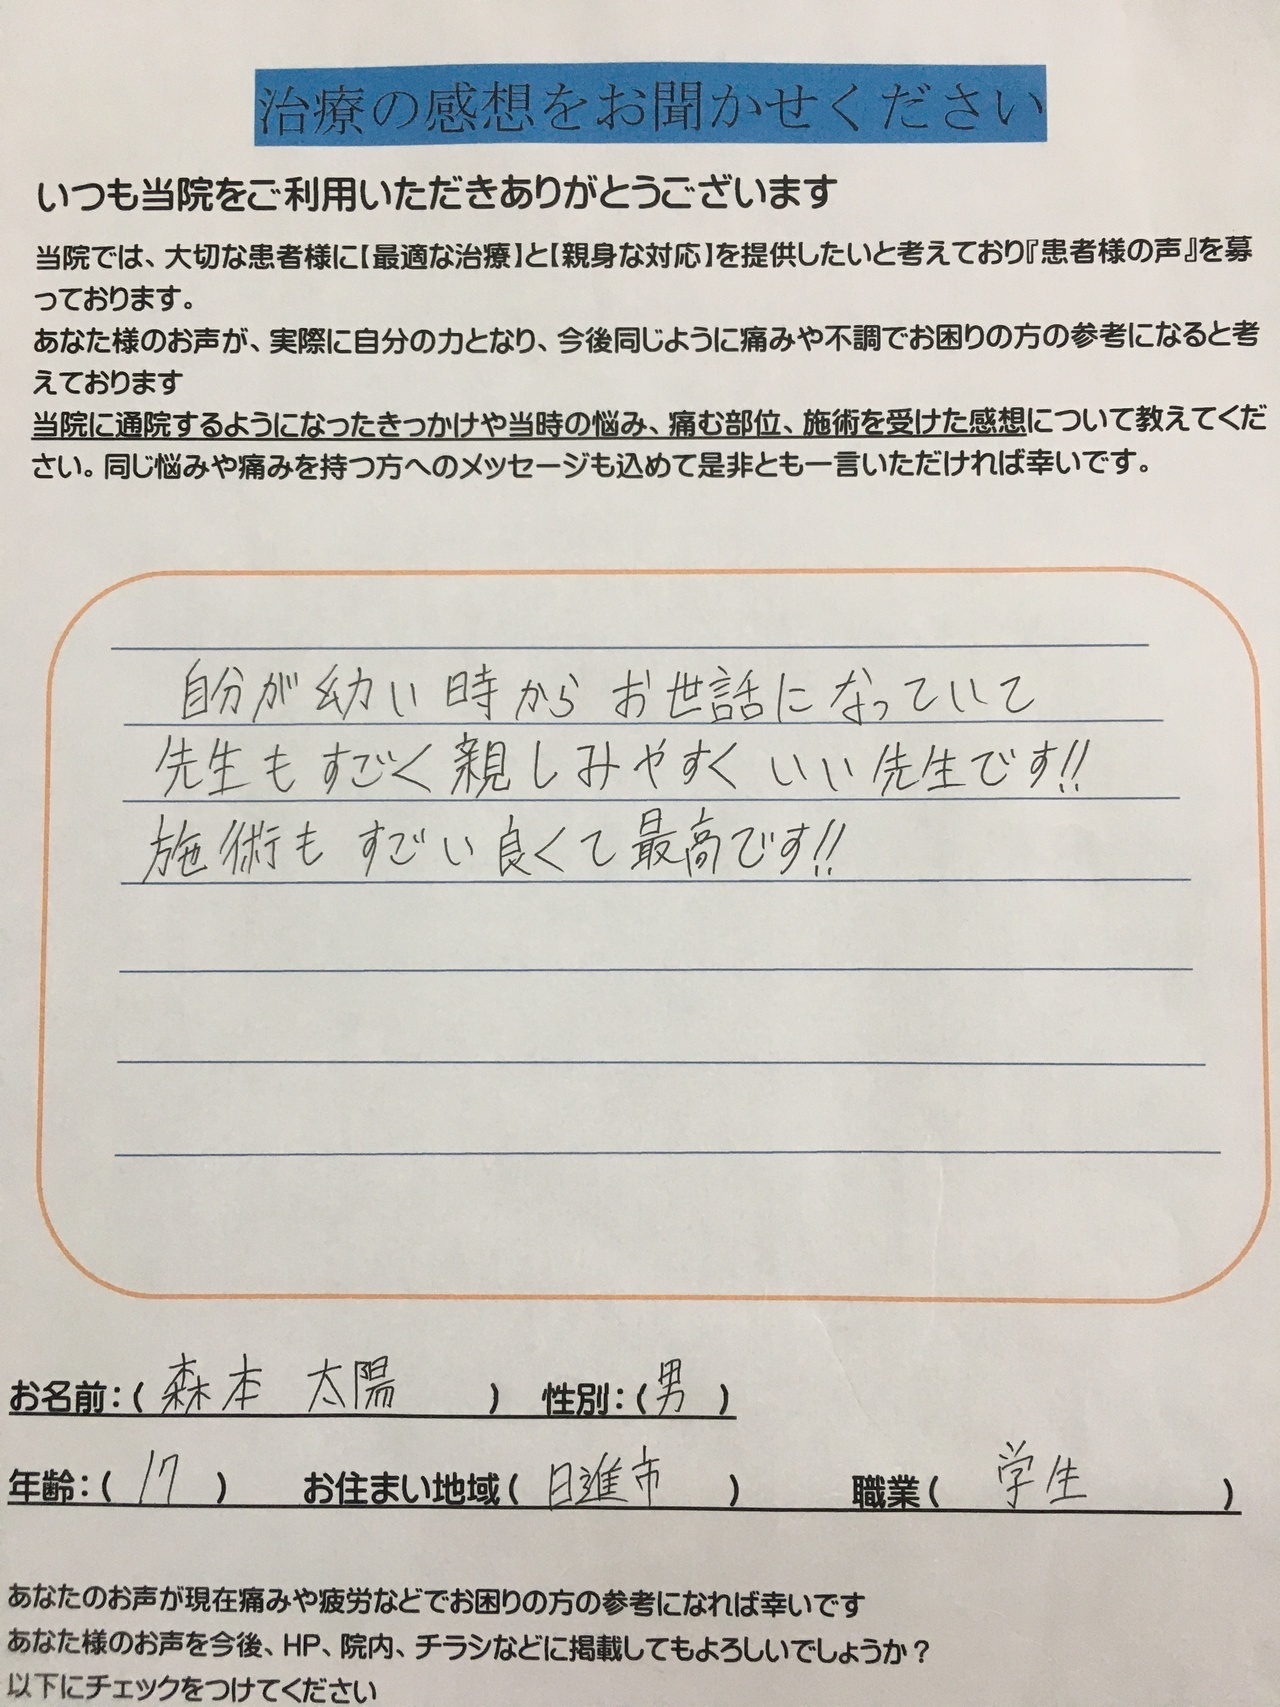 治療の感想をお聞かせください
いつも当院をご利用いただきありがとうございます
当院では、大切な患者様に【最適な治療】と【親身な対応】を提供したいと考えており『患者様の声』を募
っております。
あなた様のお声が、実際に自分の力となり、今後同じように痛みや不調でお困りの方の参考になると考
えております
当院に通院するようになったきっかけや当時の悩み、痛む部位、施術を受けた感想について教えてくだ
さい。同じ悩みや痛みを持つ方へのメッセージも込めて是非とも一言いただければ幸いです。
自分が幼い時からお世話になっていて
先生もすごく親しみやすくいい先生です!!
施術もすごい良くて最高です!!
お名前：( 森本 太陽 ) 性別：( 男 )
年齢：( 17 ) お住まい地域( 日進市 ) 職業( 学生 )
あなたのお声が現在痛みや疲労などでお困りの方の参考になれば幸いです
あなた様のお声を今後、HP、院内、チラシなどに掲載してもよろしいでしょうか？
以下にチェックをつけてください